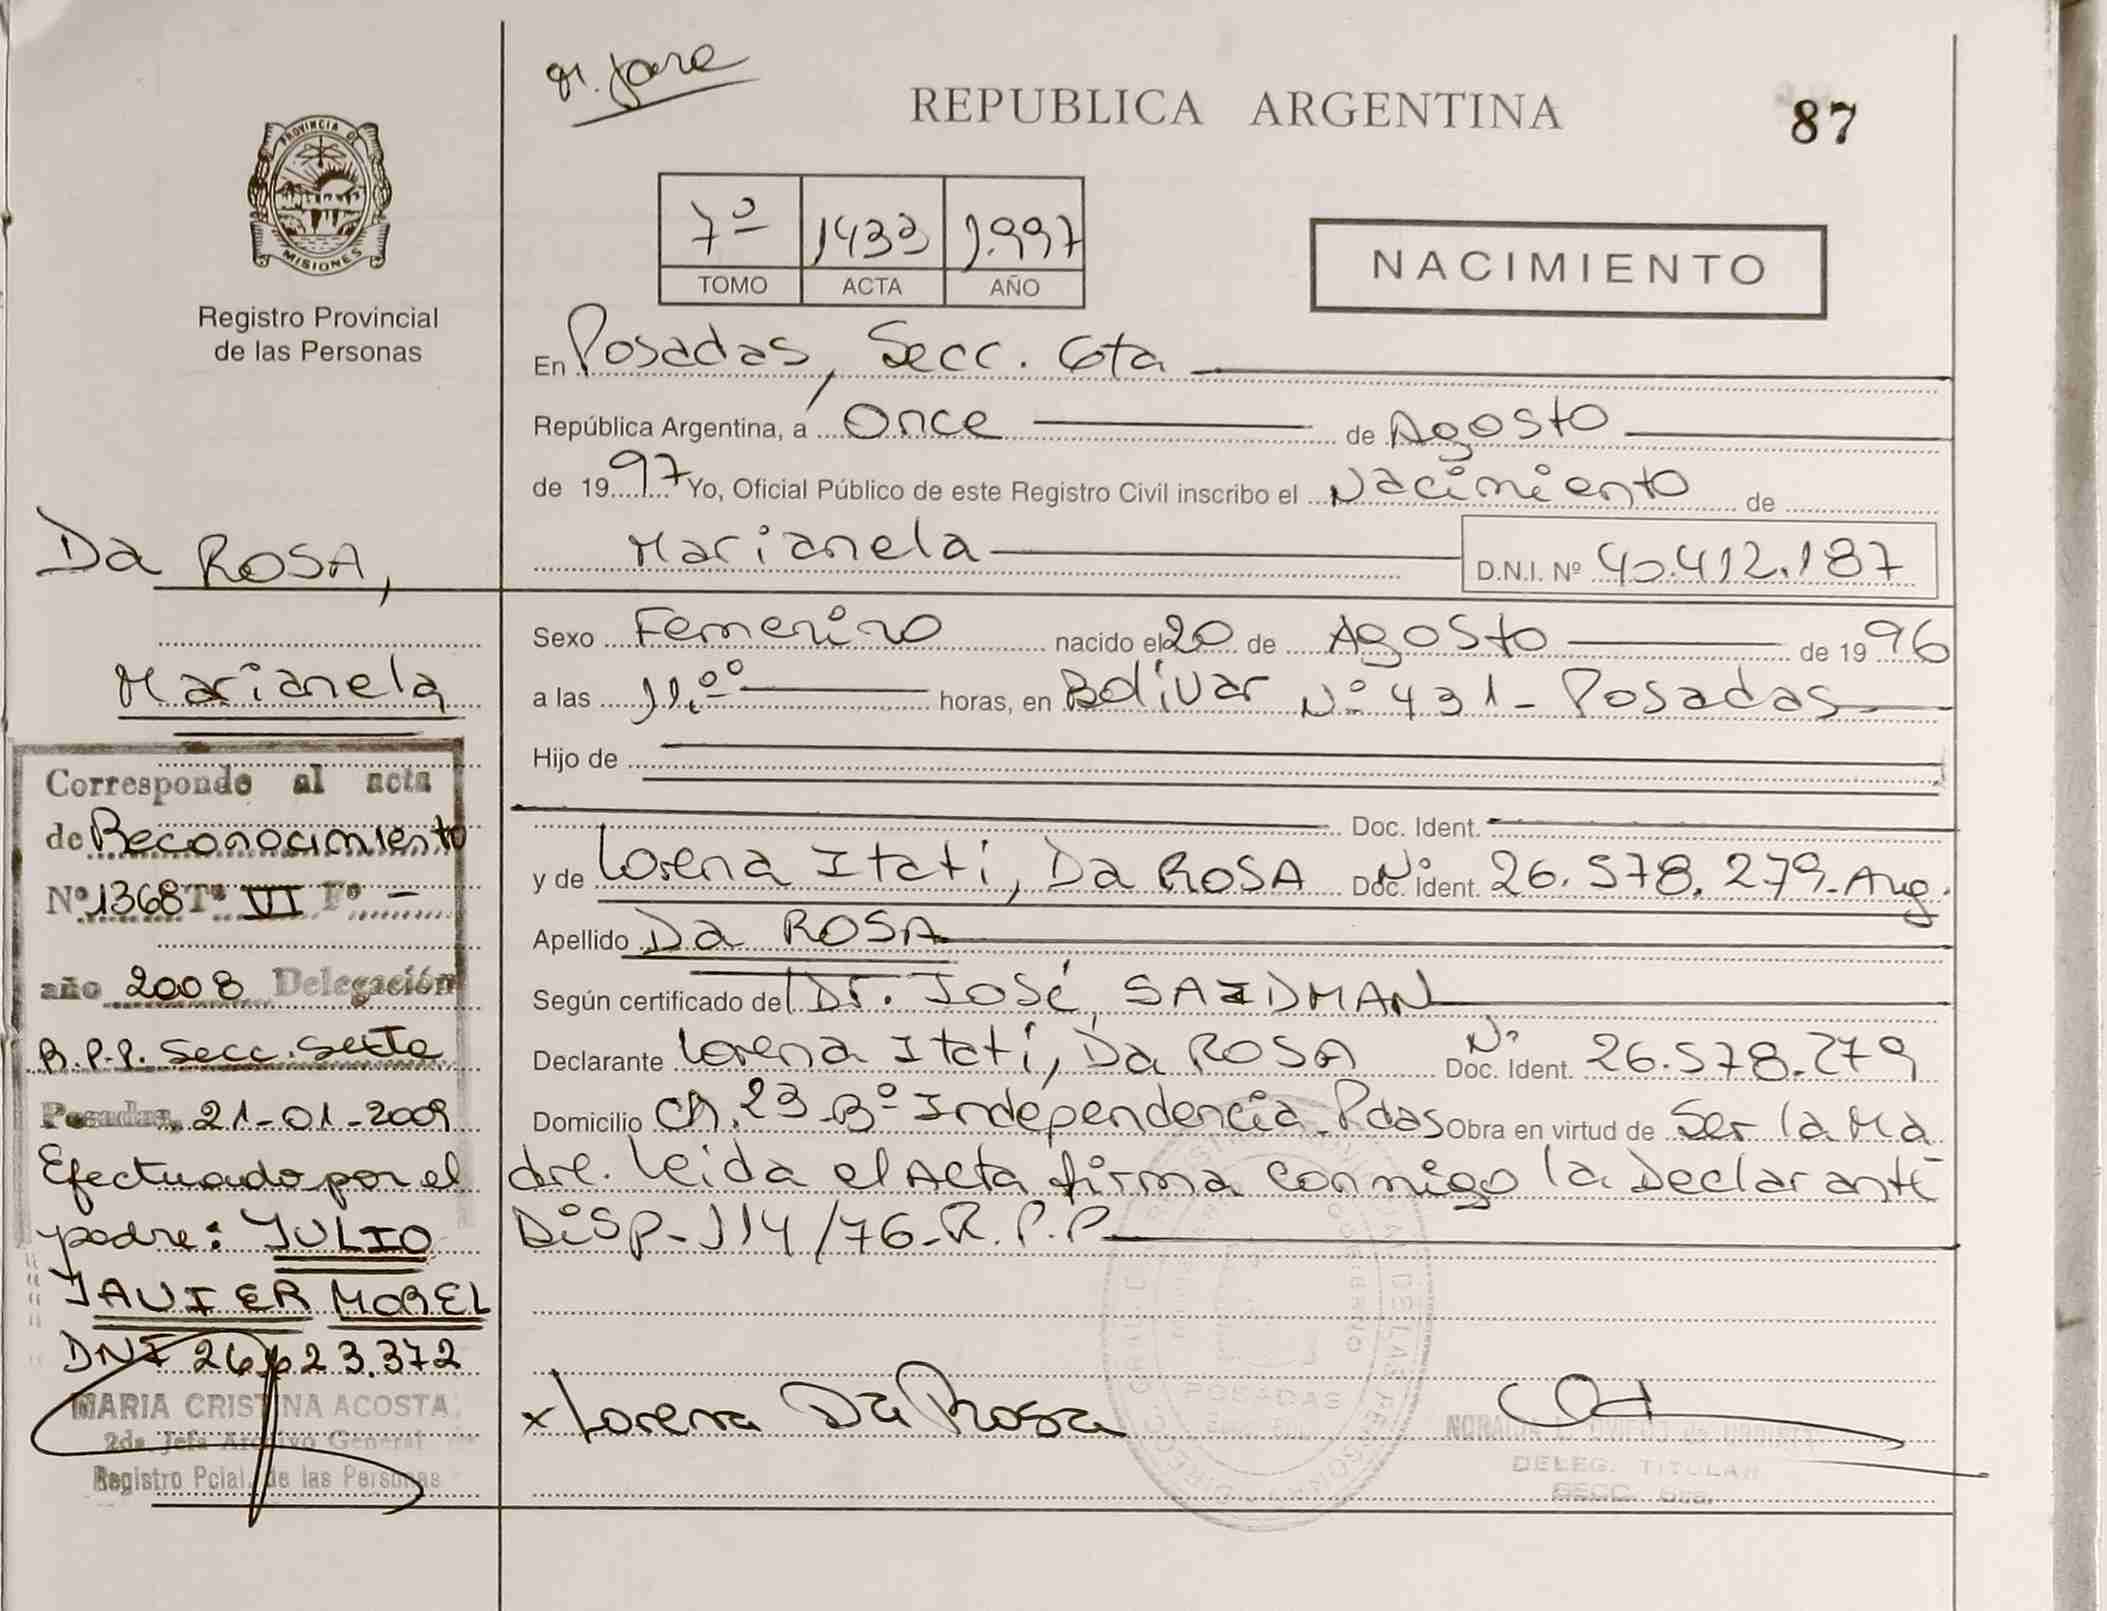 REPUBLICA ARGENTINA
87
PROVINCIA DE
MISIONES
Registro Provincial
de las Personas
7º 1433 1.997
TOMO ACTA AÑO
NACIMIENTO
En Posadas, Secc. 6ta
República Argentina, a Once de Agosto
de 1997 Yo, Oficial Público de este Registro Civil inscribo el Nacimiento de
Marianela D.N.I. Nº 40.412.187
Sexo Femenino nacido el 20 de Agosto de 1996
a las 11.ºº horas, en Bolívar Nº 431 - Posadas
Hijo de
Doc. Ident.
y de Lorena Itatí, Da ROSA Nº Doc. Ident. 26.578.279. Arg.
Apellido Da ROSA
Según certificado del Dr. José SAIDMAN
Declarante Lorena Itatí, Da ROSA Nº Doc. Ident. 26.578.279
Domicilio Ch. 23 - Bº Independencia - Pdas Obra en virtud de Ser la Ma
dre. Leida el Acta firma conmigo la Declarante
DISP - 114/76 - R.P.P.
x Lorena Da Rosa
POSADAS
DELEG. TITULAR
Da ROSA,
Marianela
Corresponde al acta
de Reconocimiento
Nº 1368 Tº VI Fº -
año 2008 Delegación
R.P.P. Secc. Sexta
Posadas, 21-01-2009
Efectuado por el
padre: JULIO
JAVIER MOREL
DNI 26.623.372
MARIA CRISTINA ACOSTA
2da Jefa Archivo General
Registro Pcial. de las Personas